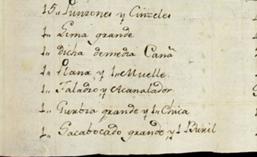 15„ Punzones y Cinceles
1„ Lima grande
1„ Dicha de media Caña
1„ Plana y 1„ Muelle
1„ Taladro y Acanalador
1„ Gurbia grande y 1„ Chica
1„ Sacabocado grande y 1 Buril